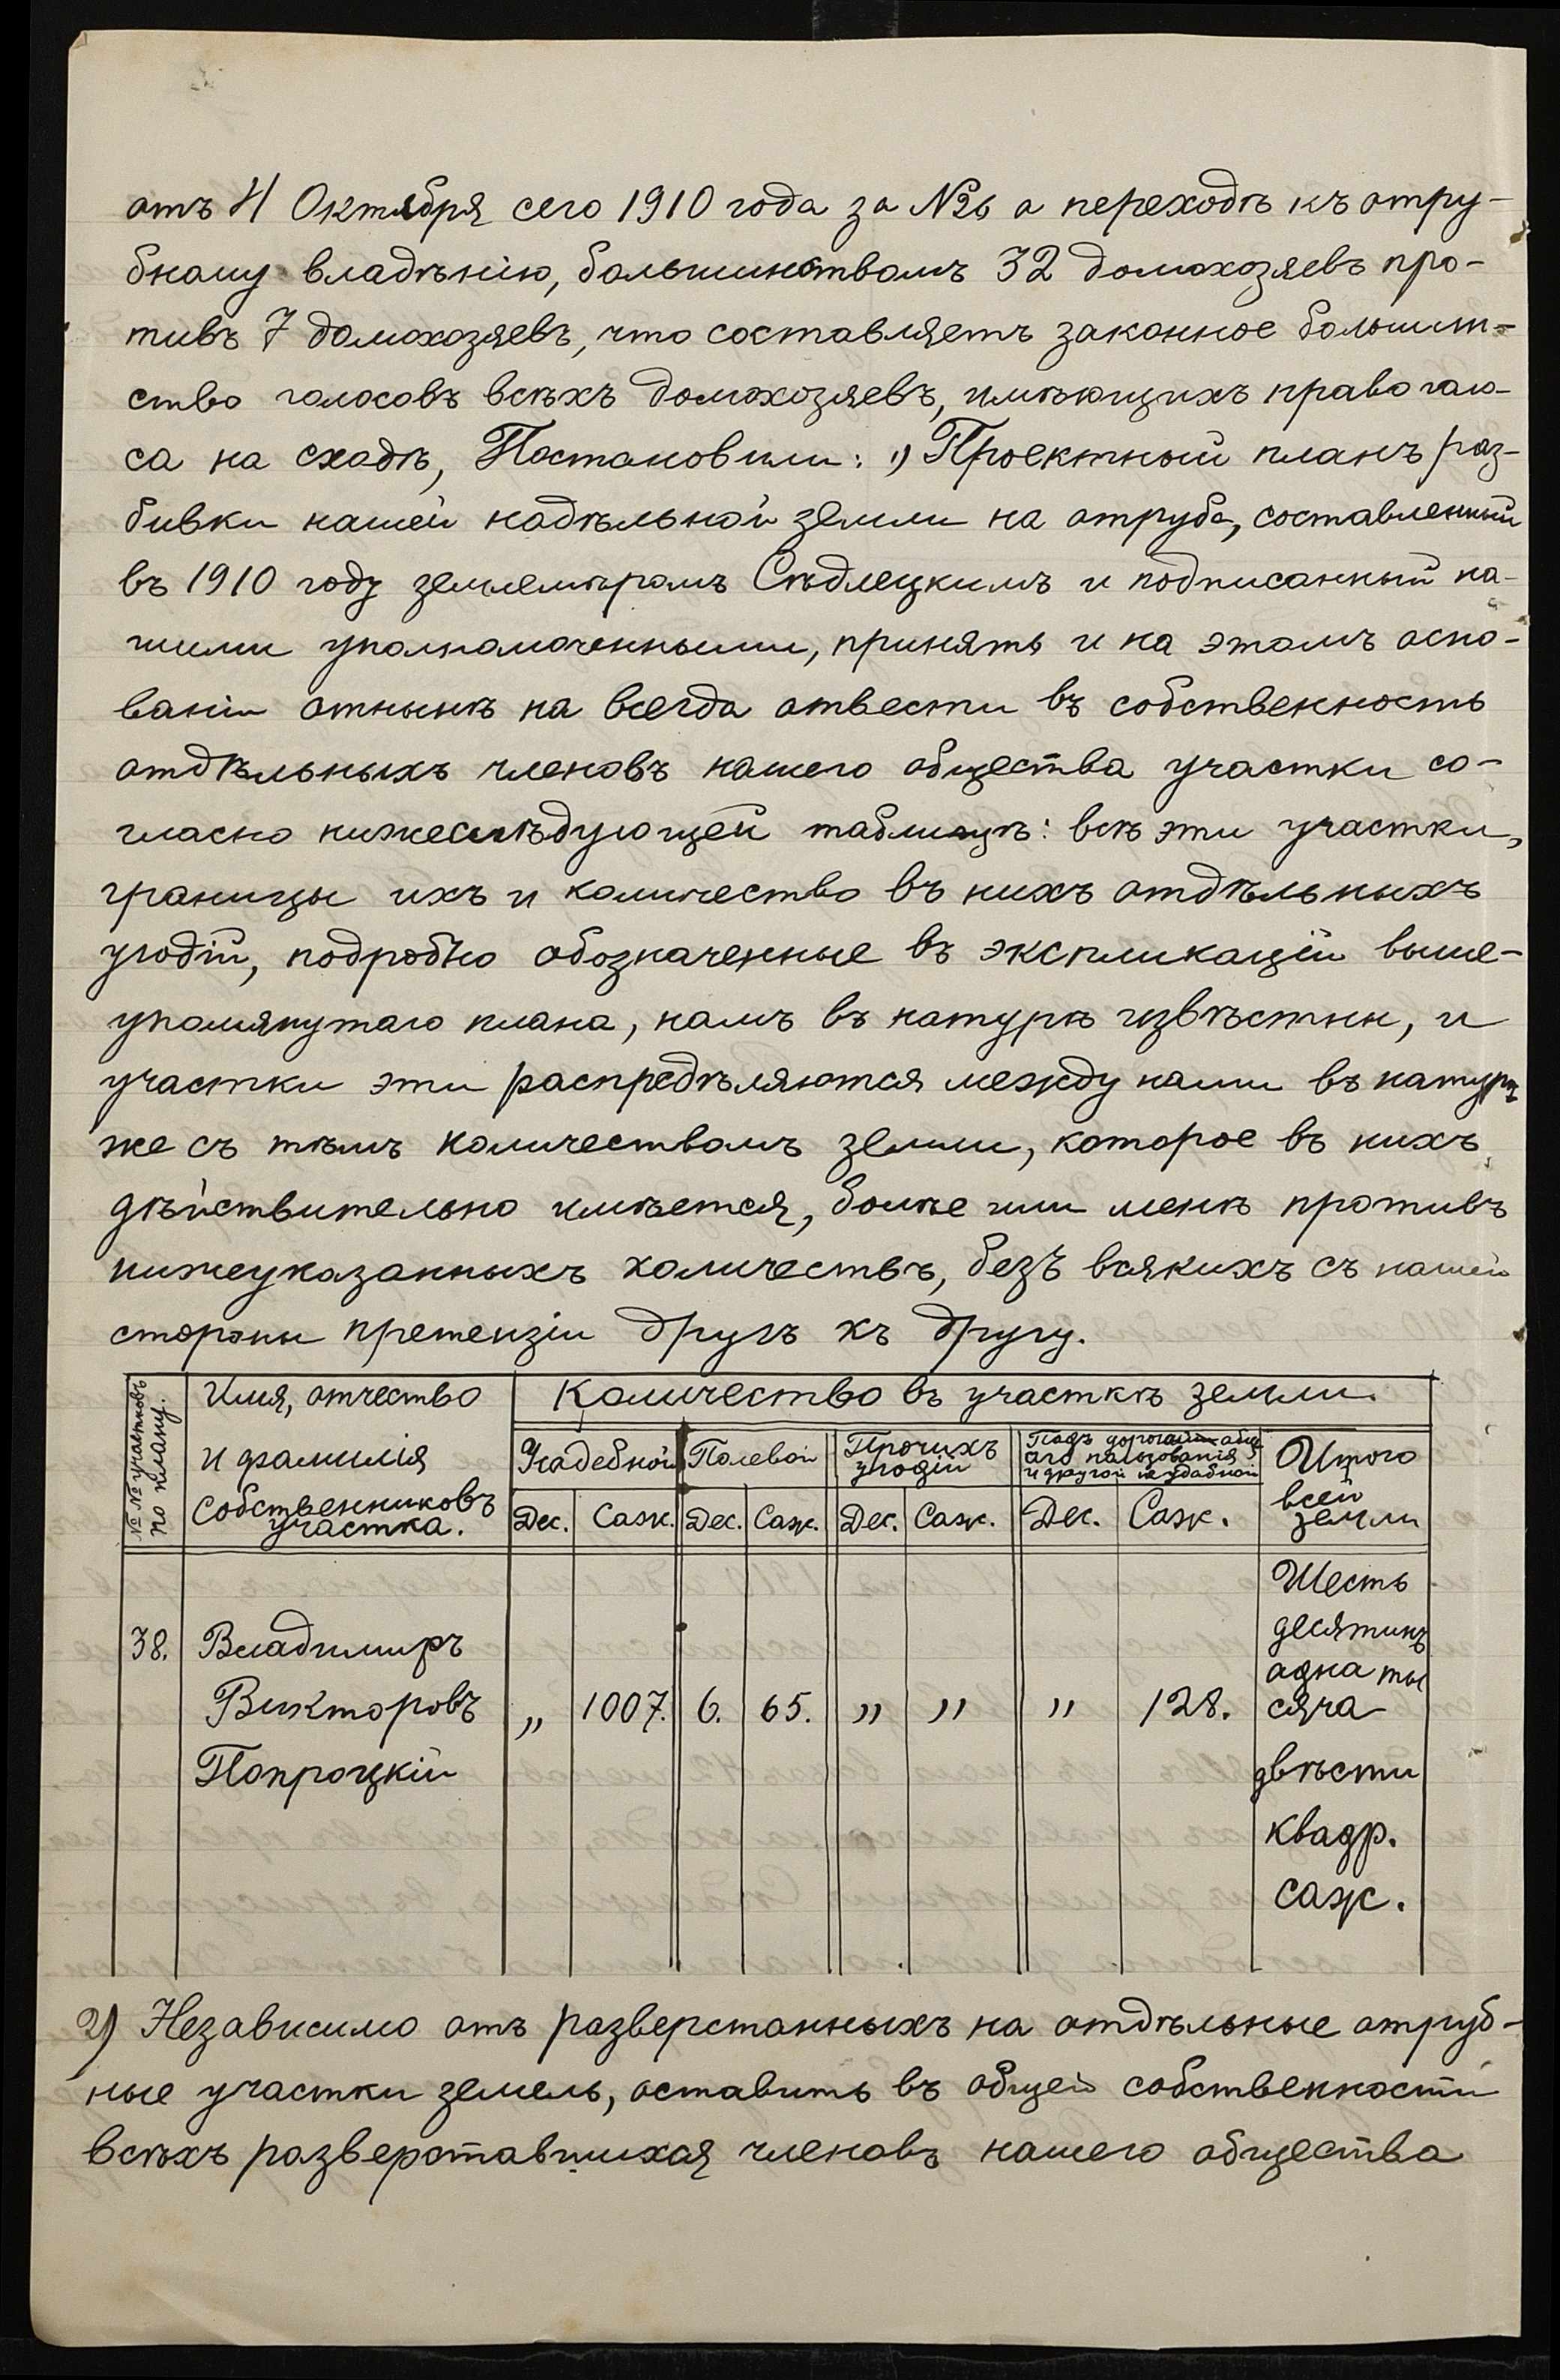 отъ 4 Октября сего 1910 года за №26 о переходѣ къ отру-
бному владѣнію, большинствомъ 32 домохозяевъ про-
тивъ 7 домохозяевъ, что составляетъ законное большин-
ство голосовъ всѣхъ домохозяевъ, имѣющихъ право голо-
са на сходѣ, Постановили: 1) Проектный планъ раз-
бивки нашей надѣльной земли на отруба, составленный
въ 1910 году землемѣромъ Сѣдлецкимъ и подписанный на-
шими уполномоченными, принять и на этомъ осно-
ваніи отнынѣ на всегда отвести въ собственность
отдѣльныхъ членовъ нашего общества участки со-
гласно нижеслѣдующей таблицѣ: всѣ эти участки,
границы ихъ и количество въ нихъ отдѣльныхъ
угодій, подробно обозначенные въ экспликаціи выше-
упомянутаго плана, намъ въ натурѣ извѣстны, и
участки эти распредѣляются между нами въ натурѣ
же съ тѣмъ количествомъ земли, которое въ нихъ
дѣйствительно имѣется, болѣе или менѣ противъ
нижеуказанныхъ количествъ, безъ всякихъ съ нашей
стороны претензіи другъ къ другу.
№№ участковъ по плану.
Имя, отчество
и фамилія
собственниковъ
участка.
Количество въ участкѣ земли.
Усадебной Полевой Прочихъ угодій Подъ дорогами обща
го пользованія
и другой неудобной
Итого
всей
земли
Дес. Саж. Дес. Саж. Дес. Саж. Дес. Саж.
38. Владимиръ
Викторовъ
Попроцкій
„ 1007. 6. 65. „ „ „ 128.
Шесть
десятинъ
одна ты
сяча
двѣсти
квадр.
саж.
2) Независимо отъ разверстанныхъ на отдѣльные отруб-
ные участки земель, оставить въ общей собственности
всѣхъ разверставшихся членовъ нашего общества